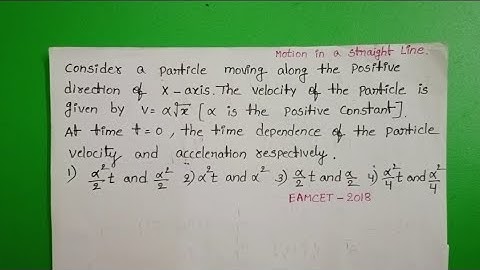 Motion in a Straight Line.
Consider a particle moving along the positive
direction of X-axis. The velocity of the particle is
given by V = α√x [α is the Positive Constant].
At time t=0, the time dependence of the particle
velocity and acceleration respectively.
1) α²/2 t and α²/2 2) α²t and α² 3) α/2 t and α/2 4) α²/4 t and α²/4
EAMCET - 2018